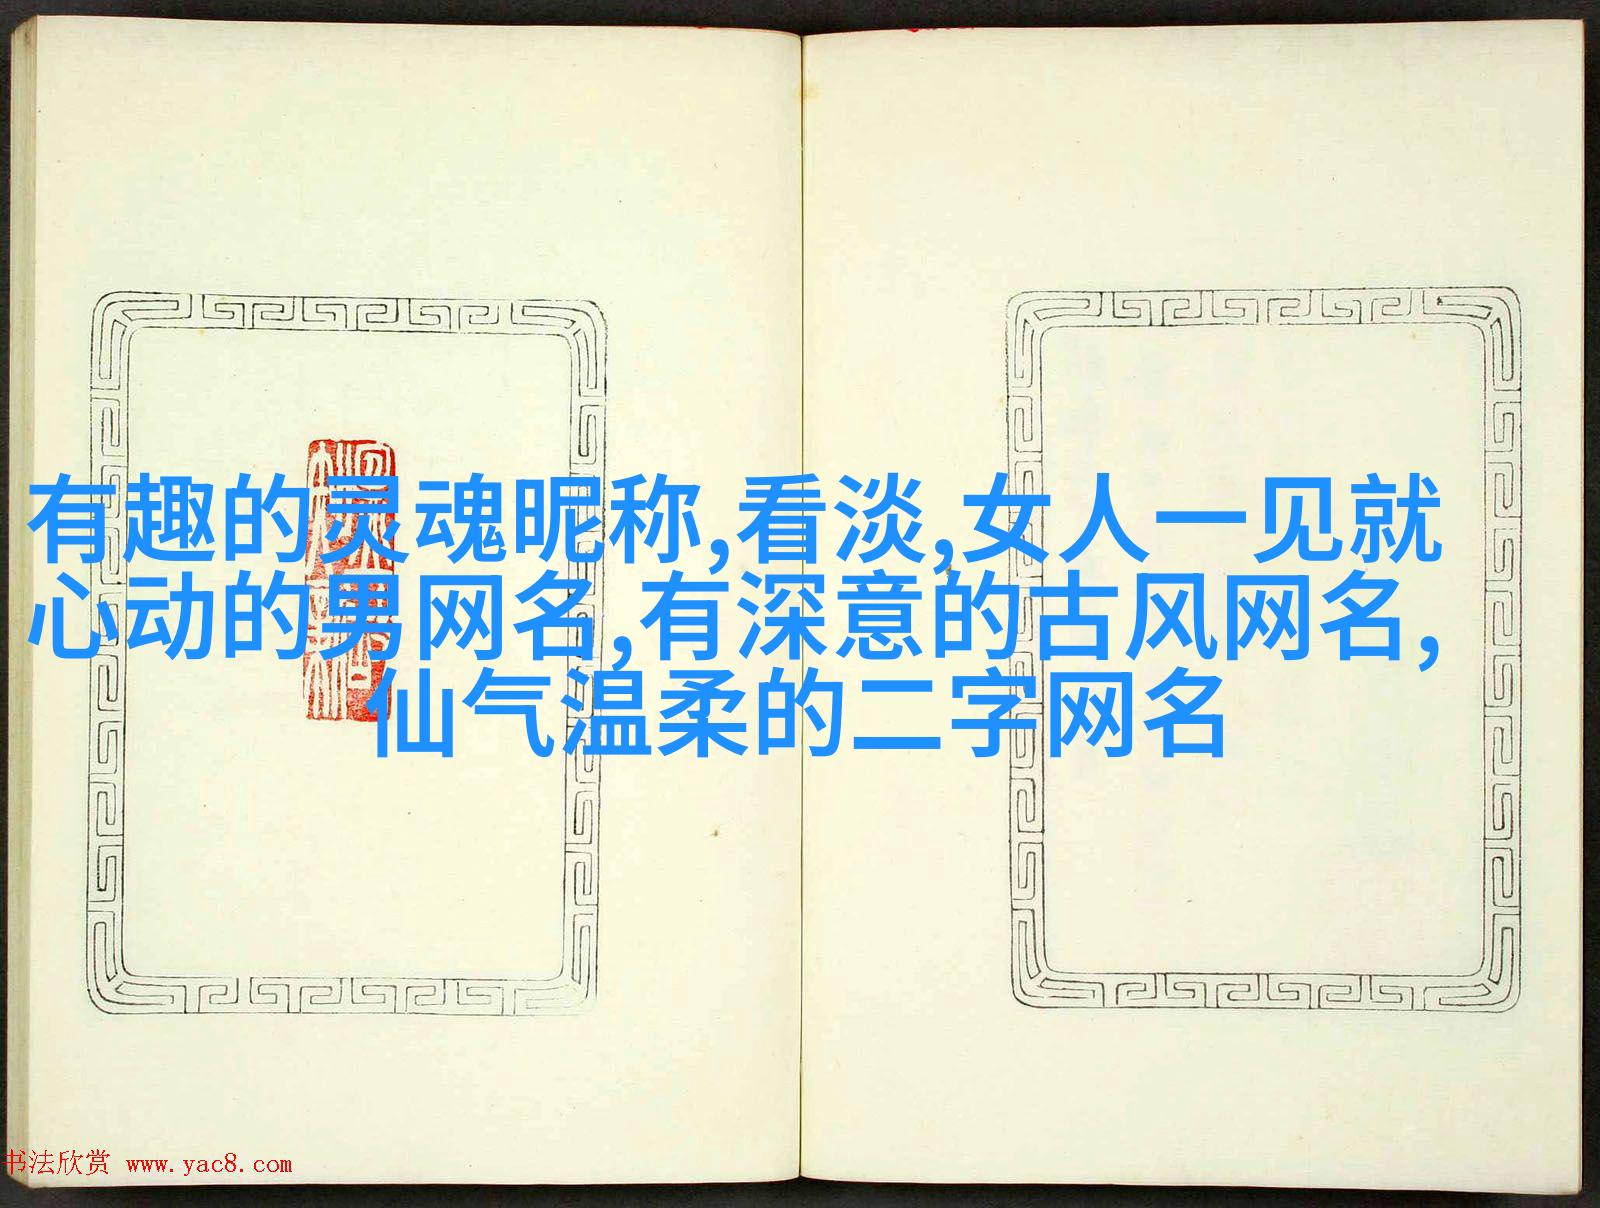 有趣的灵魂昵称,看淡,女人一见就
心动的男网名,有深意的古风网名,
仙气温柔的二字网名
书法欣赏 www.yac8.com